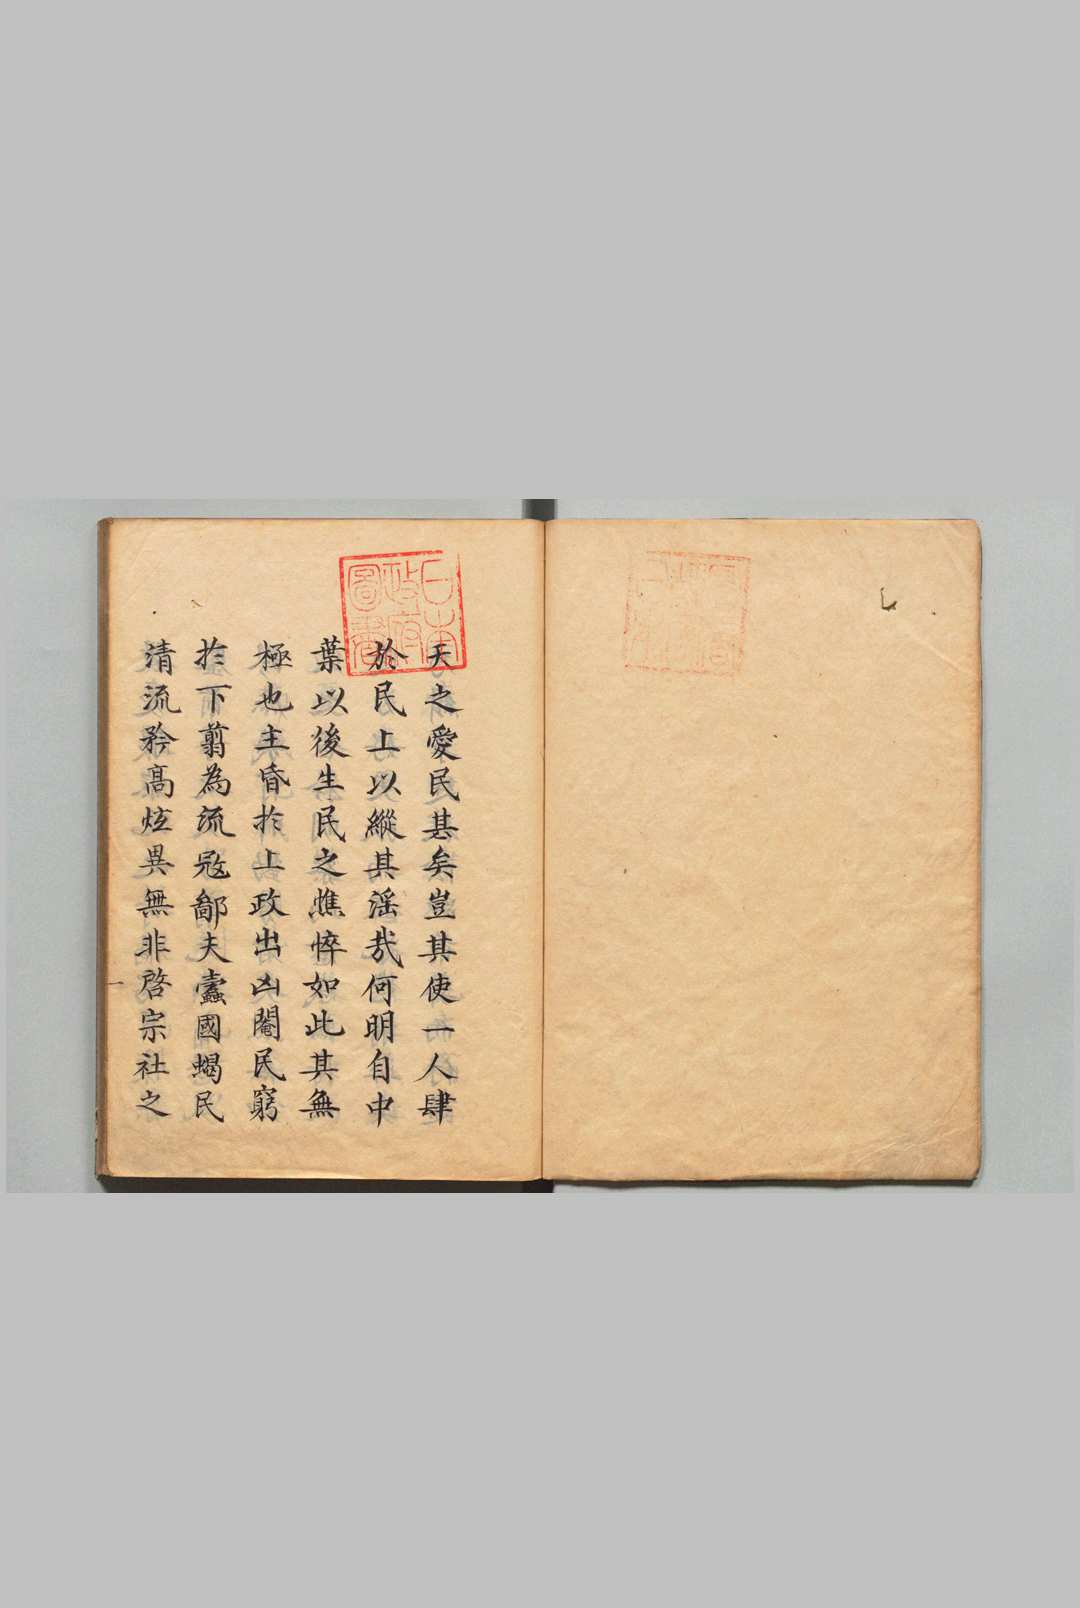 天之愛民甚矣豈其使一人肆
於民上以縱其淫哉何明自中
葉以後生民之憔悴如此其無
極也主昏扵上政出凶閹民窮
扵下翦為流寇鄙夫蠹國蝎民
清流矜高炫異無非啓宗社之
日本
政府
圖書